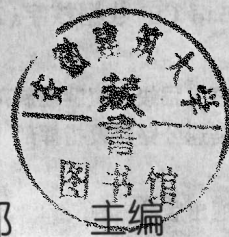 安徽建筑大学
藏
書
图书馆
主编